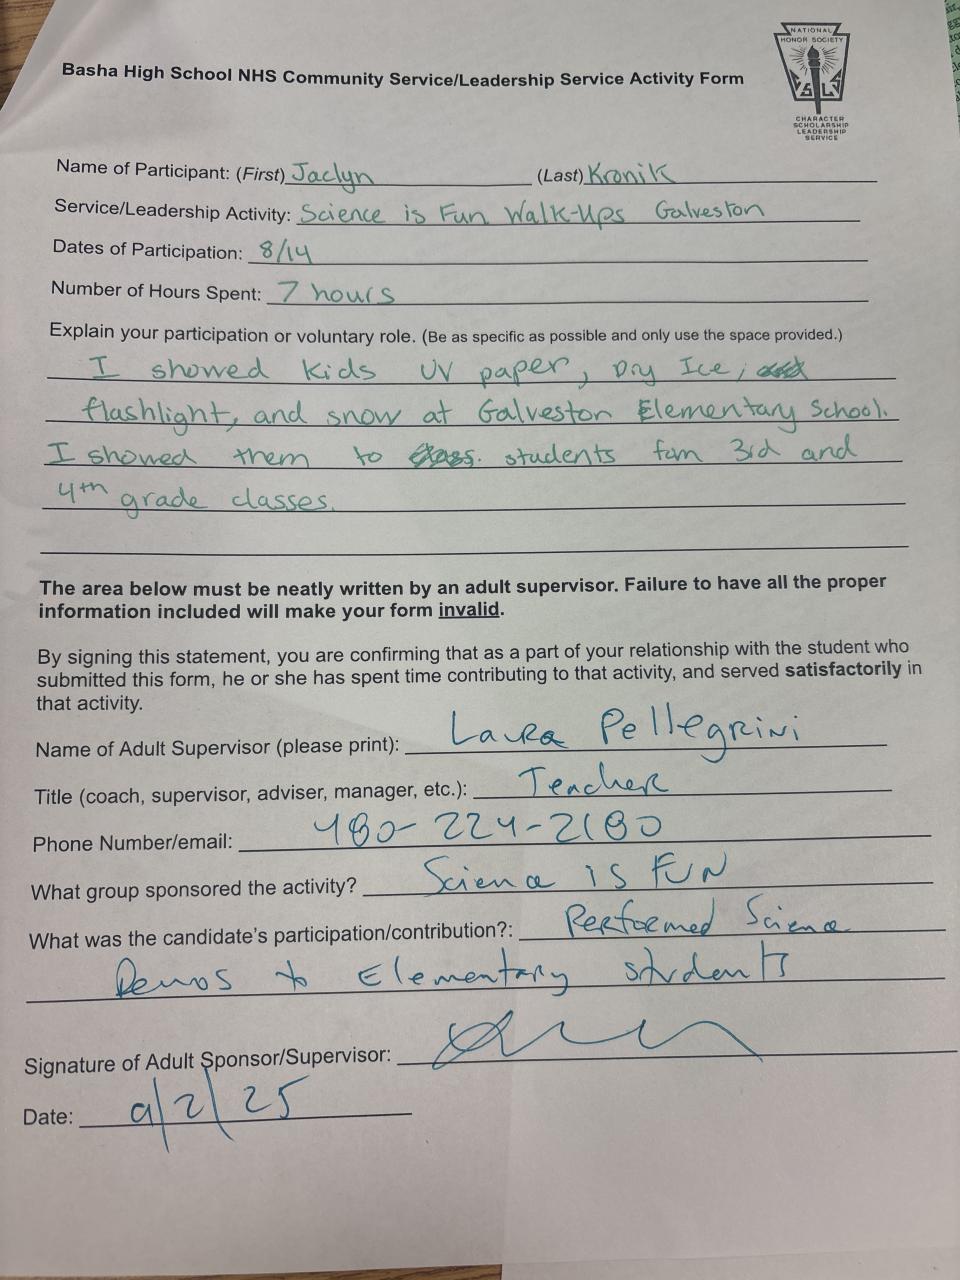 NATIONAL
HONOR SOCIETY
CHARACTER
SCHOLARSHIP
LEADERSHIP
SERVICE
Basha High School NHS Community Service/Leadership Service Activity Form
Name of Participant: (First) Jaclyn (Last) Kronik
Service/Leadership Activity: Science is Fun Walk-Ups Galveston
Dates of Participation: 8/14
Number of Hours Spent: 7 hours
Explain your participation or voluntary role. (Be as specific as possible and only use the space provided.)
I showed kids UV paper, Dry Ice,
flashlight, and snow at Galveston Elementary School.
I showed them to students fom 3rd and
4th grade classes.
The area below must be neatly written by an adult supervisor. Failure to have all the proper
information included will make your form invalid.
By signing this statement, you are confirming that as a part of your relationship with the student who
submitted this form, he or she has spent time contributing to that activity, and served satisfactorily in
that activity.
Name of Adult Supervisor (please print): Laura Pellegrini
Title (coach, supervisor, adviser, manager, etc.): Teacher
Phone Number/email: 480-224-2180
What group sponsored the activity? Science is FUN
What was the candidate's participation/contribution?: Performed Science
Demos to Elementary students
Signature of Adult Sponsor/Supervisor:
Date: 9/2/25